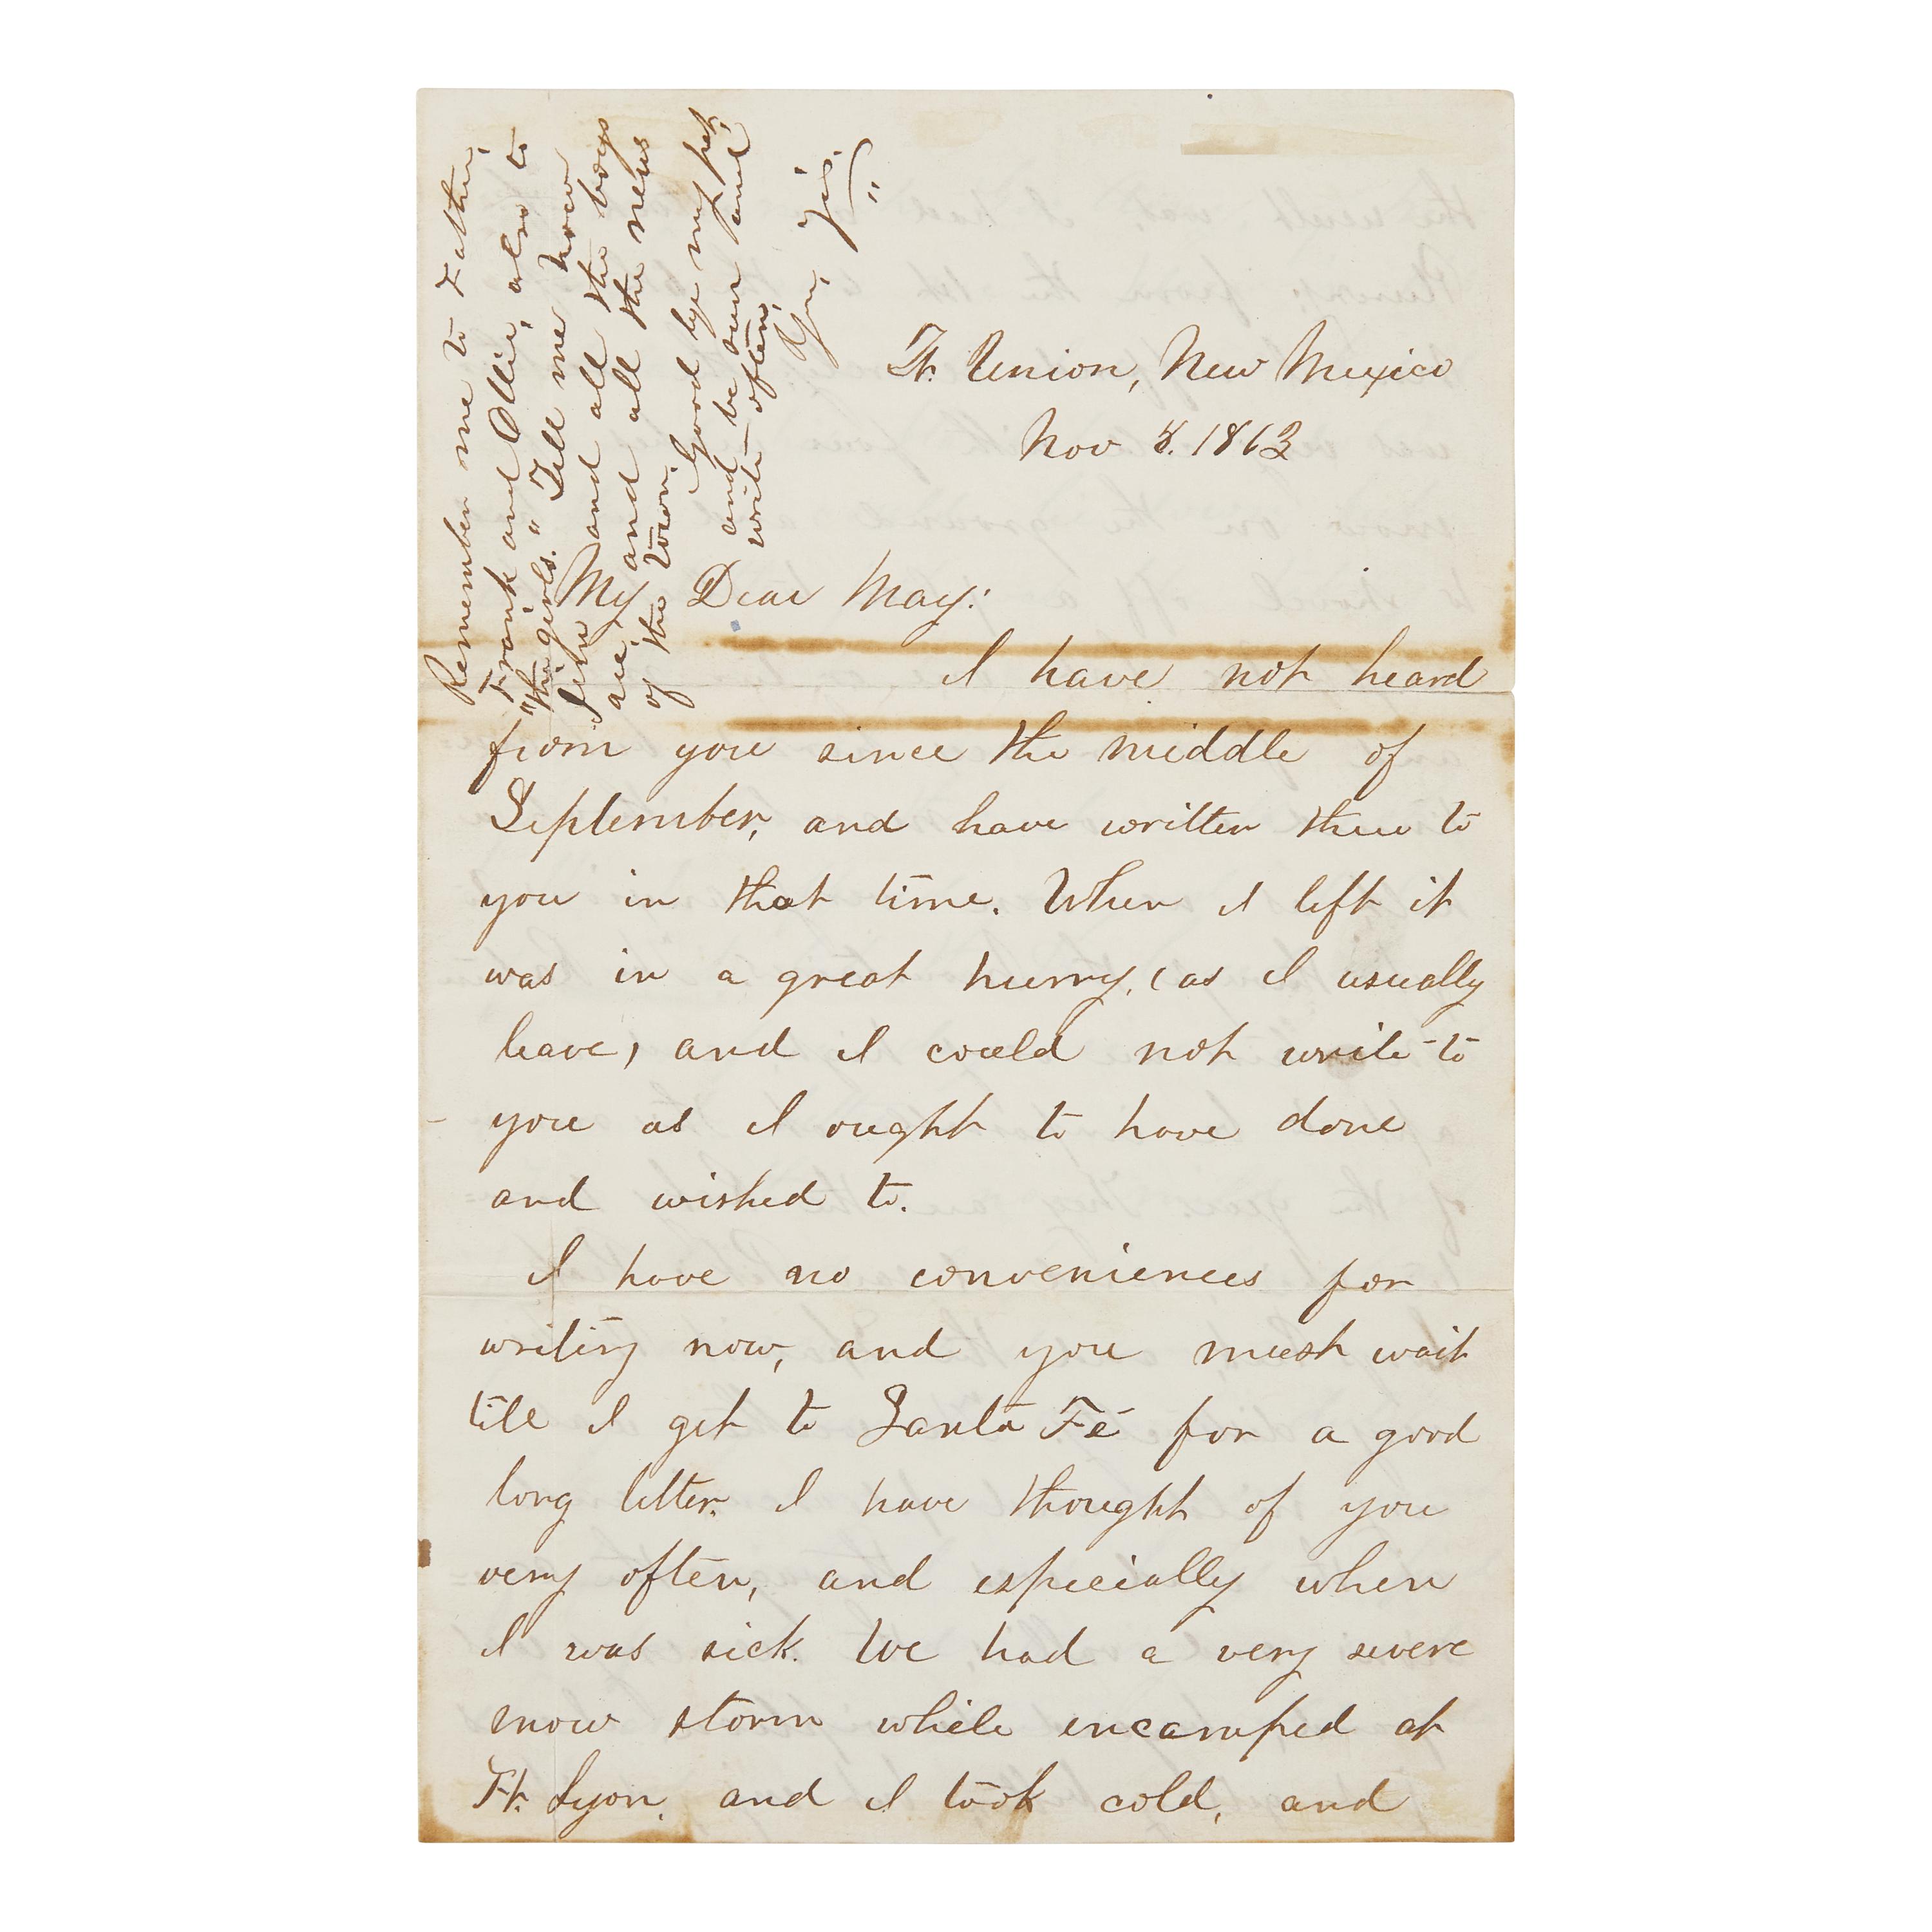 Ft. Union, New Mexico
Nov 8. 1863
My Dear May:
I have not heard
from you since the middle of
September, and have written three to
you in that time. When I left it
was in a great hurry, (as I usually
leave) and I could not write to
you as I ought to have done
and wished to.
I have no conveniences for
writing now, and you must wait
till I get to Santa Fé for a good
long letter. I have thought of you
very often, and especially when
I was sick. We had a very severe
snow storm while encamped at
Ft. Lyon, and I took cold, and
Remember me to Father,
Frank and Ollie, also to
"the girls." Tell me how
and all the boys
are, and all the news
of the town.
Good bye my pet,
and be sure and
write often,